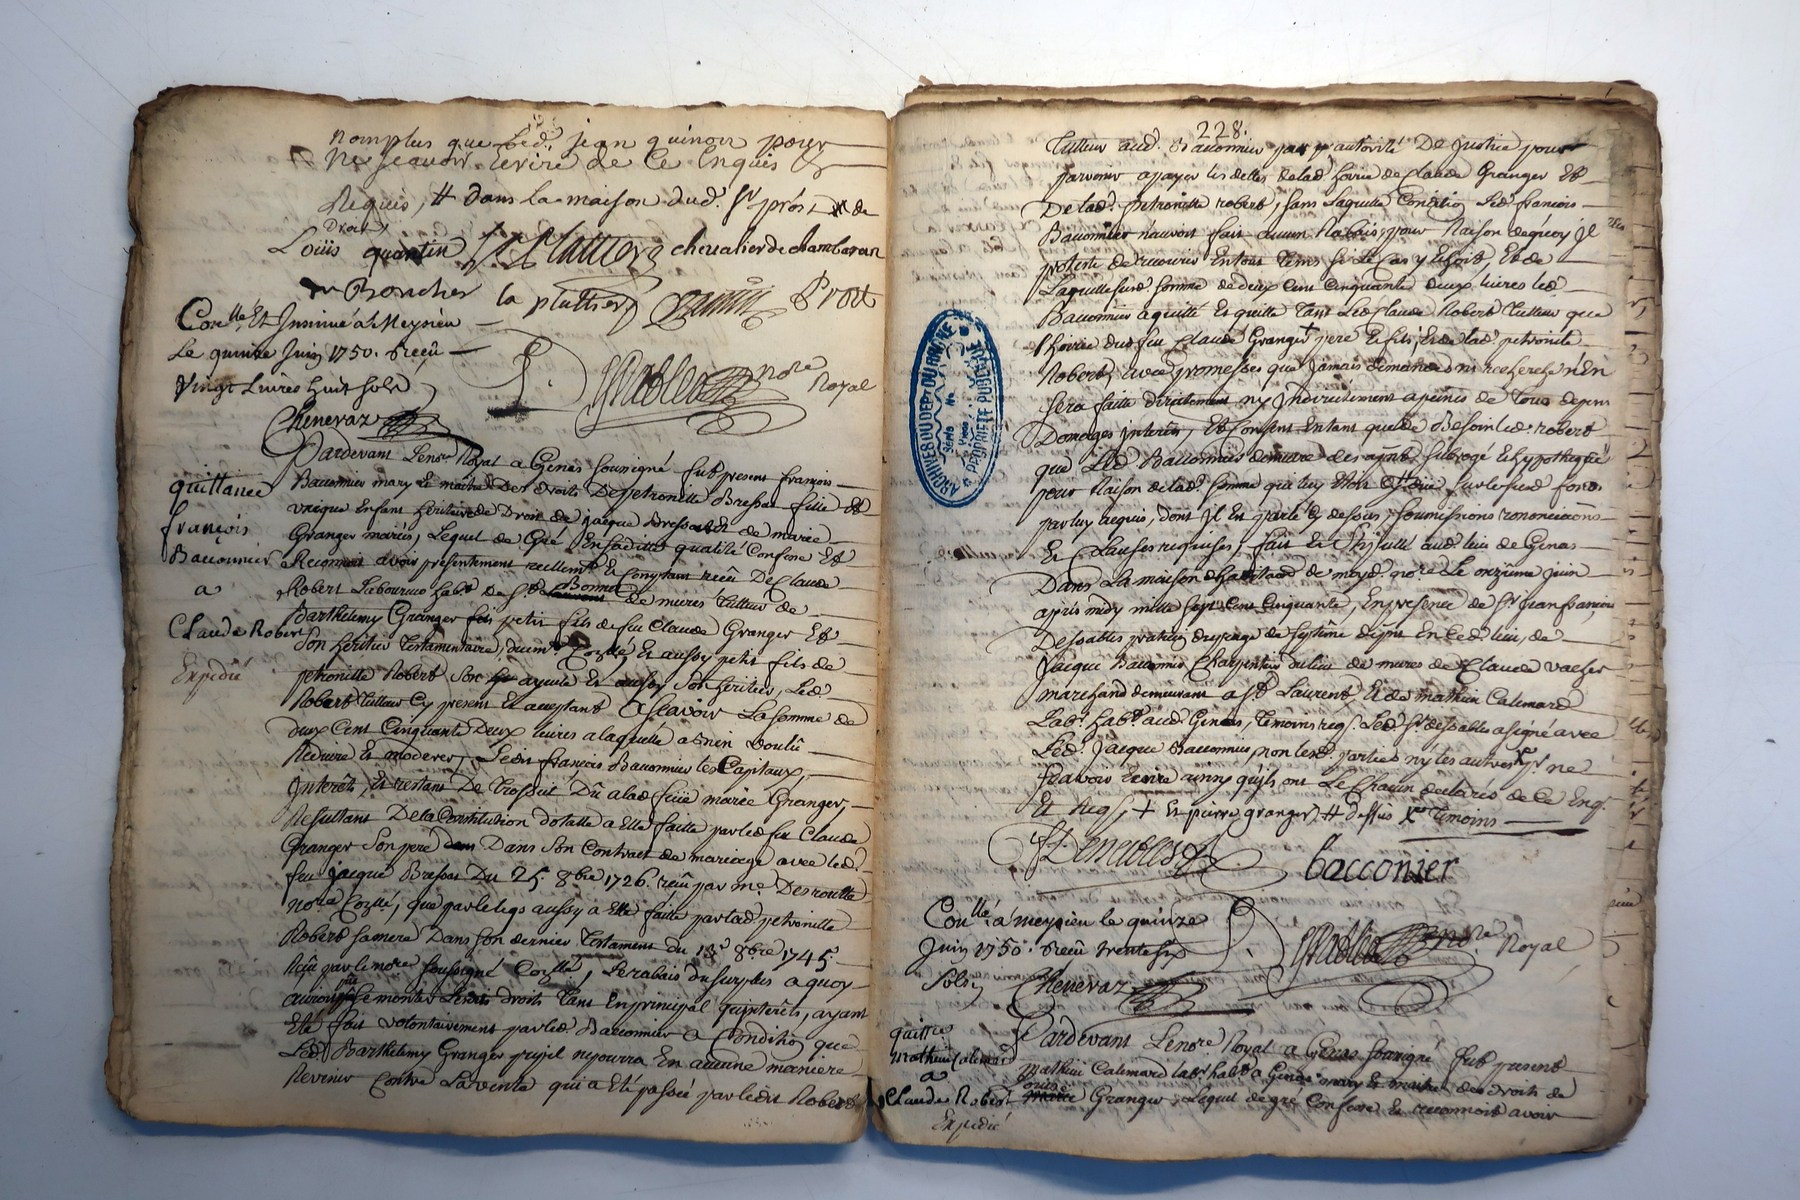 nomplus que led. jean quinon pour
ne scavoir Ecrire de Ce Enquis &
Requis, # dans la maison dud. Sr prost de
Droit
Loüis quantin chevalier de chambaran
Roncher la plattiere Prost
Conllé Et Insinué a Meysieu
Le quinze Juin 1750. Receu
Vingt Livres huit sols
nore Royal
Chenevaz
Pardevant Le nore Royal a Genas soussigné fut present françois
quittance
françois
Bacconnier
a
Claude Robert
Expedié
Bacconnier mary Et maitre Des droits De petronille Bressat fille Et
unique Enfant heritiere de Droit de jacque Bressat Et de marie
Granger mariés, Lequel de Gré En sa ditte qualité Confesse Et
Reconnoit avoir presentement reellemt Et Comptant receu De Claude
Robert Laboureur habt de St Bonnet de mures Tutteur de
Barthelemy Granger petit fils de feu Claude Granger Et
Son heritier Testamentaire, Et aussy petit fils de
petronille Robert Son ayeule Et aussy Son heritier, Led.
Robert Tutteur Cy present Et acceptant Ascavoir La Somme de
deux Cent Cinquante Deux livres a laquelle a bien voulu
Reduire Et moderer, Ledit françois Bacconnier les Capitaux,
Interêts, Et restant De Trossel Dû a lad. feüe marie Granger,
Resultant De la Constitution dotalle a Elle faitte par led. feu Claude
Granger Son pere Dans Son Contract de mariage avec led.
feu jacque Bressat Du 25 8bre 1726. receu par me Desroulle
nore, que par le legs aussy a Elle faitte par lad. petronille
Robert sa mere Dans son dernier Testament du 13e 8bre 1745
Receu par le nore soussigné, Le rabais du surplus a quoy
auroit pu se monter Lesdits droits Tant En principal qu'interêts, ayant
Eté fait volontairement par led. Bacconnier a Condition que
Led. Barthelemy Granger pupil ne pourra En aucune maniere
Revenir Contre La vente qui a Eté passée par ledit Robert
228.
Tutteur aud. Bacconnier par autorité De Justice pour
parvenir a payer les dettes de lad. hoirie de Claude Granger Et
De lad. petronille robert, sans laquelle Condition Led. francois
Bacconnier n'auroit fait aucun Rabais, pour Raison de quoy Il
proteste de recourir En tous Tems si le Cas y Echoit, Et de
Laquelle susd. somme de deux Cent Cinquante deux livres led.
Bacconnier a quitté Et quitte Tant Led. Claude Robert Tutteur que
l'hoirie dud. feu Claude Granger + pere Et fils, Et de lad. petronille
Robert, avec promesses que jamais demande ni recherche n'En
sera faite directement ny Indirectement a peines de Tous depens
Domages interêts, Et Consent Entant que de Besoin led. robert
que Led. Bacconnier demeure des apnt subrogé Et hypothequé
pour Raison de lad. somme qui luy Etoit # sur le susd. fonds
par luy acquis, dont Il Est parlé Cy dessus, soumissions renonciations
Et Clauses requises, fait Et Stipullé aud. lieu de Genas
Dans La maison d'habitaon de moyd. nore Le onzieme juin
apres midy mille sept Cent Cinquante, En presence de Sr jean françois
Dessables praticien En led. lieu, de
Jacque Bacconnier Charpentier du lieu de mures de Claude
marchand demeurant a St Laurent Et de mathieu Calemard
Labr. habt aud. Genas, Temoins reqs. Led. Sr dessables a signé avec
Led. Jacque Bacconnier, non lesd. parties ny les autres ne
scavoir Ecrire ainsy qu'ils ont Le Chacun declarés de Ce Enqs
Et Reqs, + Et pierre granger, # dessus Temoins
bacconier
Conllé a meysieu le quinze
Juin 1750. Receu trente six
Sols
Chenevaz
nore Royal
ARCHIVES DU DEPT DU RHONE
PROPRIÉTÉ PUBLIQUE
quittce
Mathieu Calemard
a
Claude Robert
Expedié
Pardevant Le nore Royal a Genas soussigné fut present
mathieu Calemard labr habt a Genas mary Et maitre des droits de
Granger, Lequel de gré Confesse Et reconnoit avoir